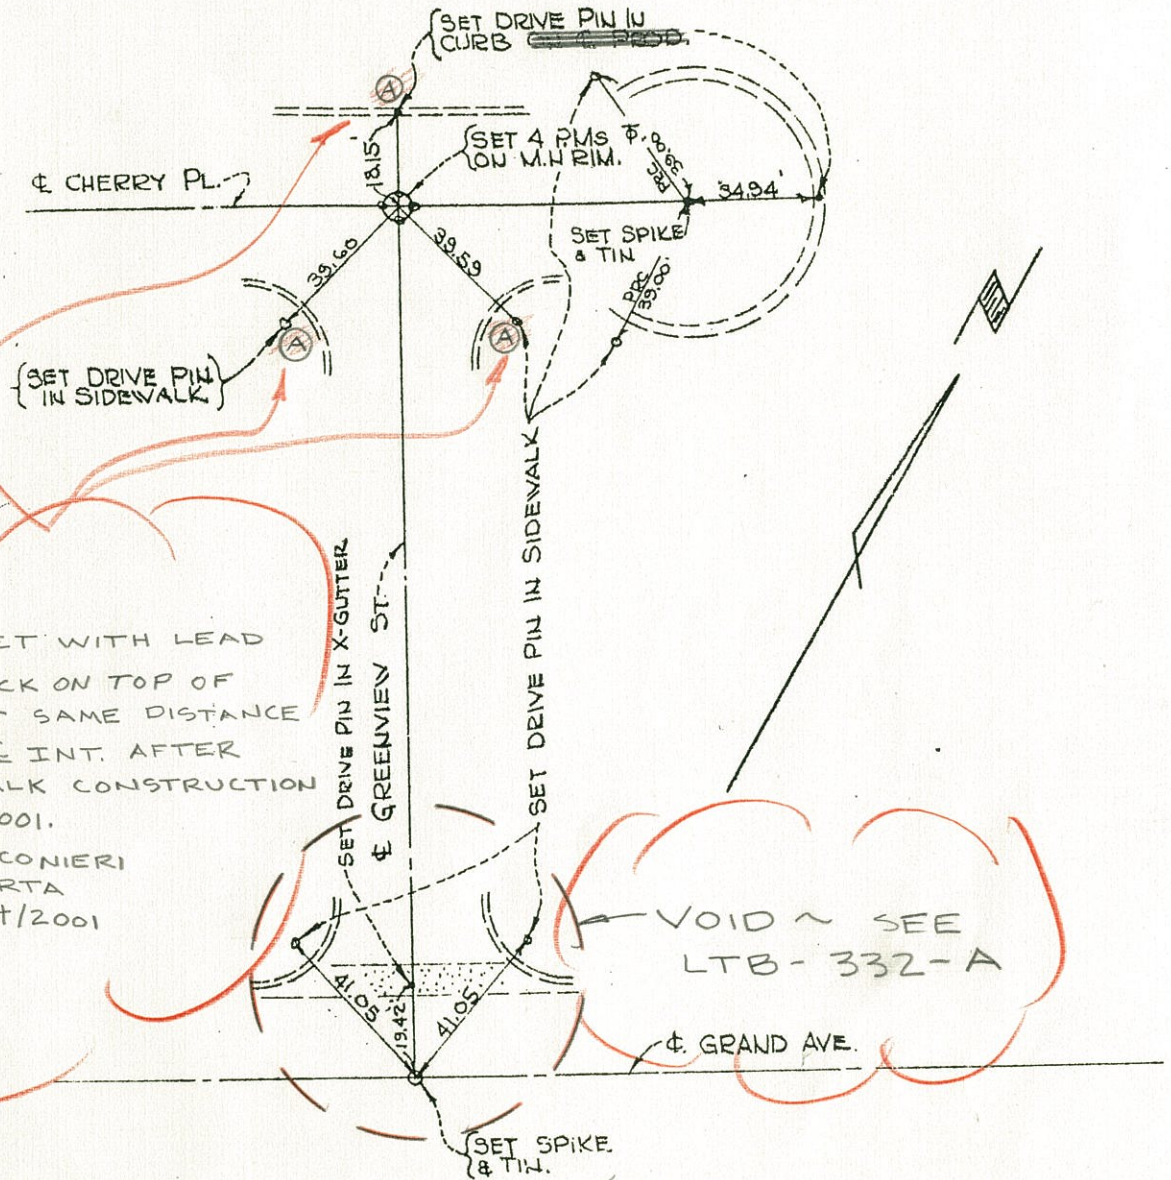 SET DRIVE PIN IN
CURB
A
SET 4 P.M.s
ON M.H RIM.
18.15'
℄ CHERRY PL.
PRC
39.00
34.94'
SET SPIKE
& TIN
39.60
39.59
PRC
39.00
A
A
SET DRIVE PIN
IN SIDEWALK
SET DRIVE PIN IN X-GUTTER
℄ GREENVIEW ST.
SET DRIVE PIN IN SIDEWALK
WITH LEAD
ON TOP OF
SAME DISTANCE
INT. AFTER
CONSTRUCTION
VOID ~ SEE
LTB-332-A
41.05
19.42
41.05
℄ GRAND AVE.
SET SPIKE
& TIN.